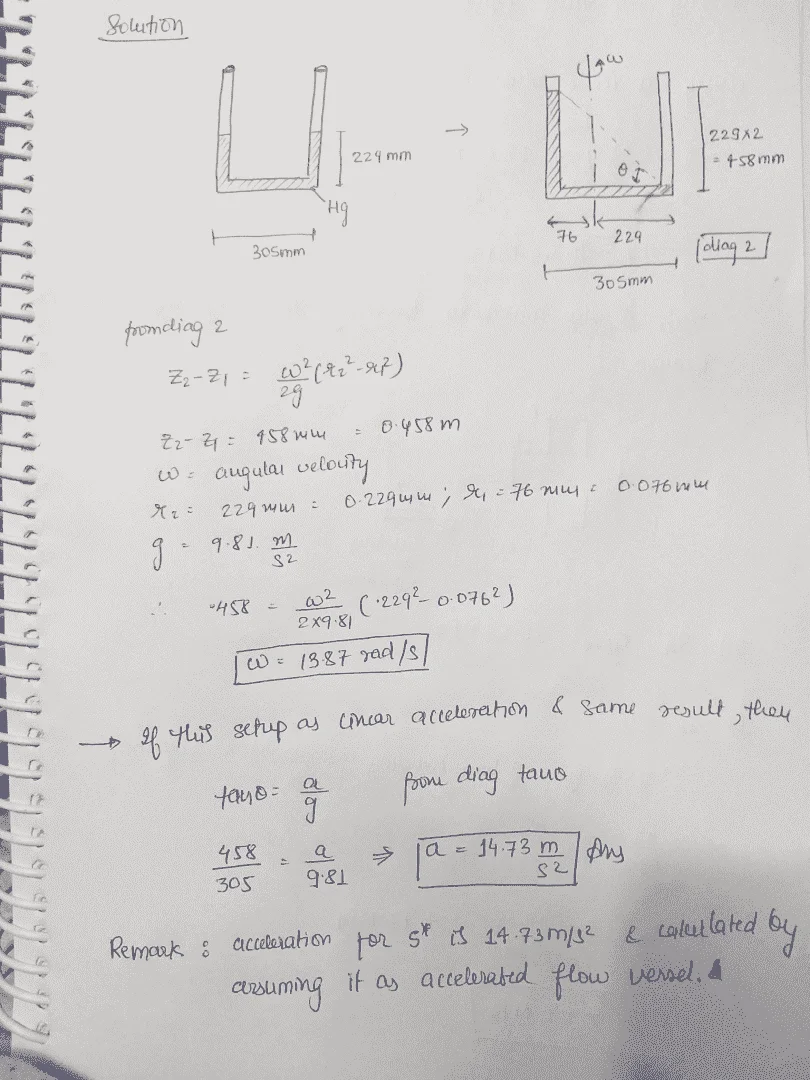 Solution
ω
229 mm
→
229×2
= 458mm
θ
Hg
76 229
305mm
diag 2
305mm
from diag 2
Z₂-Z₁ = ω²/2g (r₂²-r₁²)
Z₂-Z₁ = 458 mm = 0.458 m
ω = angular velocity
r₂ = 229 mm = 0.229mm ; r₁ = 76 mm = 0.076mm
g = 9.81 m/s²
∴ .458 = ω²/2×9.81 (.229²- 0.076²)
ω = 13.87 rad/s
→ If this setup as linear acceleration & same result, then
tanθ = a/g from diag tanθ
458/305 = a/9.81 ⇒ a = 14.73 m/s² Ans
Remark : acceleration for 5* is 14.73m/s² & calculated by
assuming it as accelerated flow vessel.